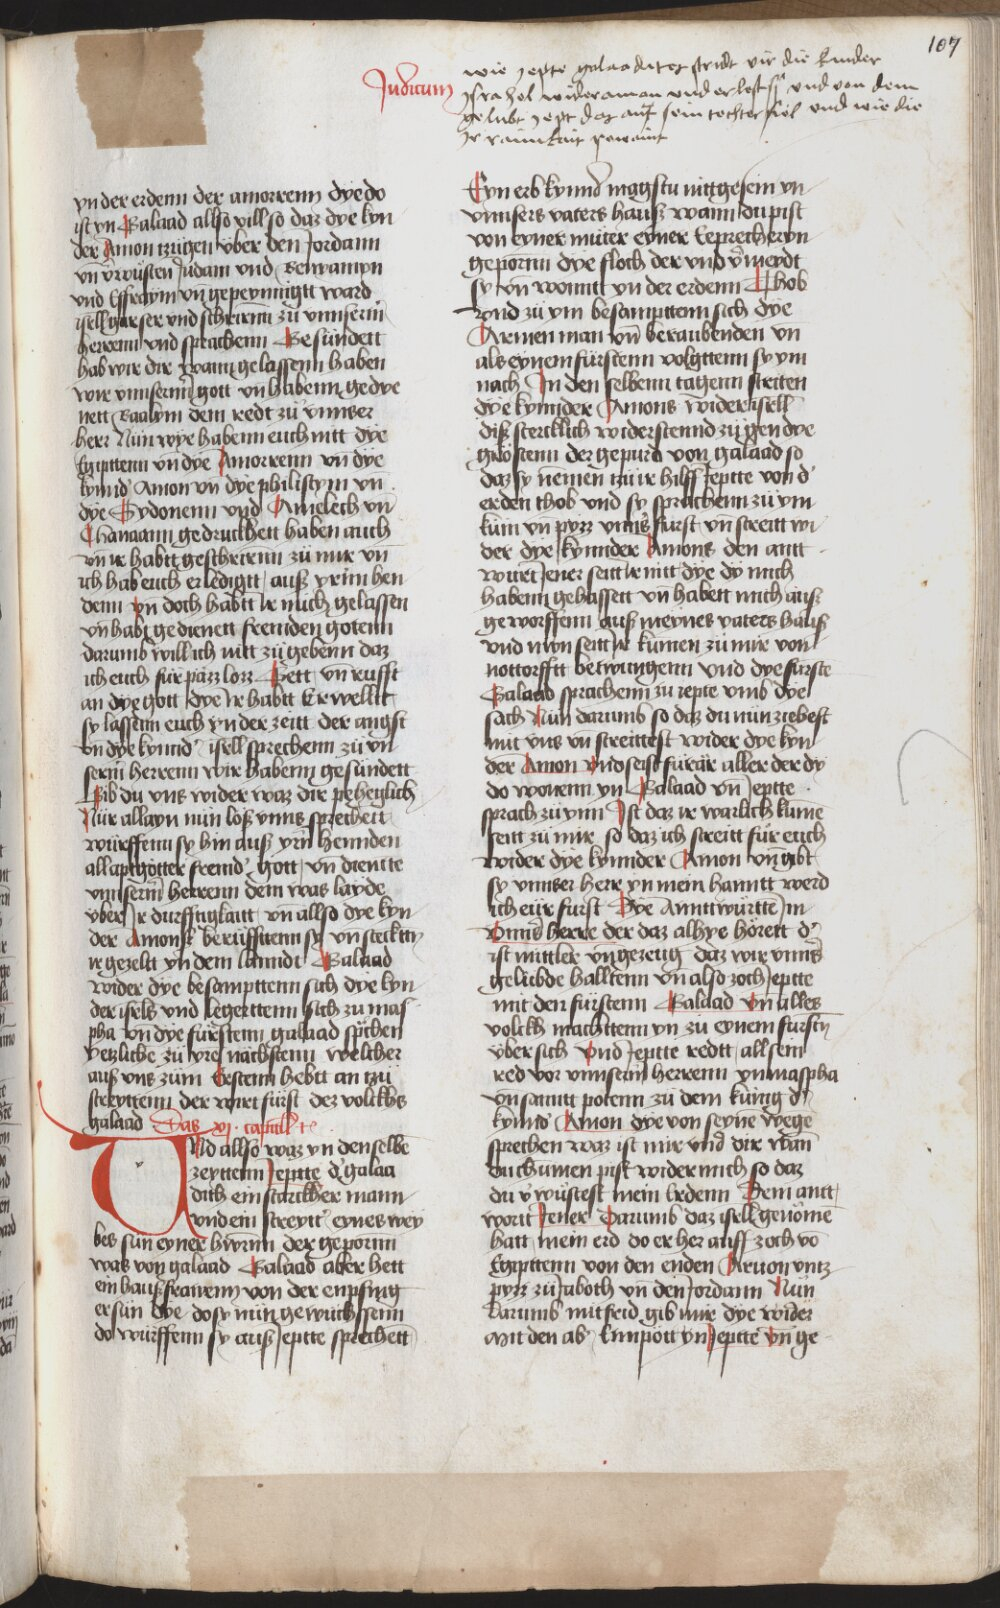 107
Judicum
wie Jepte galaaditer stridt vir die kinder
Israhel wider amon und erlost sy und von dem
gelubt Jept daz auf sein tochter viel und wie die
Ir raunikait pewaint
yn der erdenn der amorrenn dye do
ist yn Galaad allso vill so daz dye kyn
der Amon tzugen vber den Jordann
vn̄ v̓wüsten Judam vnd Benyamyn
vnd Effraym vn̄ gepeynnigtt ward
isrll gar ser vnd schrirenn zu vnnserm̄
herrenn vnd sprachenn Gesündett
hab wir dir wann gelassenn haben
wir vnnserm̄ gott vn̄ habenn gedye
nett Baalym dem redt zu vnnser
herr Nün wye habenn euch nitt dye
Egipttenn vn̄ dye Amorrenn vn̄ dye
kynnd̓ Amon vn̄ dye philistym vn̄
dye Sydonenn vnd Amelech vn̄
Chanaann gedruckhett haben auch
vn̄ ir habtt geschrirenn zu mir vn̄
ich hab euch erledigtt auß yrnn hen
denn vn̄ doch habtt Ir mich gelassen
vn̄ habt gedienett fremden gotenn
darumb will ich nitt zu gebenn daz
ich euch für pazz lozz Gett vn̄ rufft
an dye gott dye Ir habtt Erwellt
sy lassenn euch yn der zeitt der angst
vn̄ dye kynnd̓ isrll sprechenn zu vn
serm̄ herrenn wir habenn gesündett
Gib du vns wider waz dir peheglich
Nür allayn nün löß vnns sprechett
würffenn sy hin auß yrn̄ hennden
all aptgötter fremd̓ gott vn̄ dientte
vnnserm̄ herrenn dem was layde
vber Ir durfftigkaitt vn̄ allso dye kyn
der Amons berüfftenn sy vn̄ stecktn̄
ir gezeltt yn dem lanndt Galaad
wider dye besampttenn sich dye kyn
der isrls vnd legerttenn sich zu mas
pha vn̄ dye fürstenn galaad sp̄chen
yetzliche zu yrē nachstenn welcher
auß vns züm Erstenn hebtt an tzü
streyttenn der wirt fürst dez volckhs
galaad Das xi capittl
Und allso waz yn denselbe
zeyttenn Jeptte d̓ galaa
dith ein starckher mann
vnd ein streyt̓ eynes wey
bes sün eyner hwrnn der geporenn
was von galaad Galaad aber hett
ein haußfrawenn von der enpfing
er sün dye do sy nün gewüchssenn
do würffenn sy auß Jeptte sprechett
Eyn erb kynnd̓ magstu nitt gesein yn
vnnsers vaters hauß wann du pist
von eyner mutter eyner Eeprecheryn
geporenn dye floch der vnd v̓meydt
sy vn̄ wonntt yn der erdenn Thob
vnd zu ym besampttenn sich dye
Armen man vn̄ beraubenden vn̄
als eynem fürstenn volgttenn sy ym
nach In den selbenn tagenn striten
dye kynnder Amons wider isrell
diß stercklich widerstennd zu gen dye
grösten der gepurd von galaad so
daz sy nēmen tzu ir hilff Jeptte von d̓
erden thob vnd sy sprachenn zu ym
küm vn̄ pyzz vnns̓ fürst vn̄ streitt wi
der dye kynnder Amons den antt
wurt Jener seitt Ir nitt dye dy mich
habenn gehassett vn̄ habett mich auß
geworffenn auß meynes vaters hauß
vnd nun seitt Ir kumen zu mir von
nottorfftt betwungenn vnd dye fürste
Galaad sprachenn zu iepte vmb dye
sach Nün darumb so daz du nün ziehest
mit vns vn̄ streittest wider dye kyn
der Amon vnd seist fürär aller der dy
do wonenn yn Galaad vn̄ Jeptte
sprach zu ynn Ist daz ir warlich kume
seitt zu mir so daz ich streitt für euch
wider dye kynnder Amon vn̄ gibt
sy vnnser herr yn mein hanntt werd
ich eür fürst Dye Anntwürttē im
Vnnd̓ herre der daz alhye hörett d̓
ist mittler vn̄ gezeug daz wir vnns̓
gelubde halltenn vn̄ also zoch Jeptte
mit den fürstenn Galaad vn̄ alles
volckh machttenn yn zu eynem fürstn̄
vber sich Und Jeptte redtt all sein
red vor vnnserm̄ herrenn yn maspha
vn̄ sanntt potenn zu dem künig d̓
kynnd̓ Amon dye von seyne wege
sprechen waz ist mir vnd dir wan̄
du chümen pist wider mich so daz
du v̓wüstest mein Erdenn Dem antt
wortt Jener Darumb daz isrll genōmē
hatt mein erd do er her auff zoch vō
Egipttenn von den enden Arnon vntz
pyzz zu Jaboth vn̄ den Jordann Nün
darumb mit frid gib mir dye wider
Mit den ab Empött yn Jeptte vn̄ ge